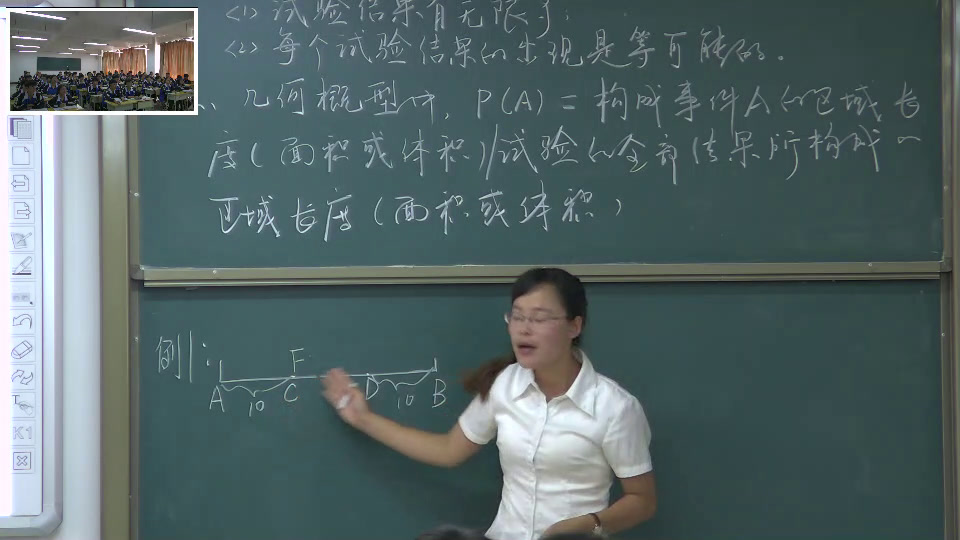 <1>试验结果有无限个;
<2>每个试验结果的出现是等可能的.
、几何概型中, P(A)=构成事件A的区域长
度(面积或体积)/试验的全部结果所构成的
区域长度(面积或体积)
例1:
F
A 10 C D 10 B
K1